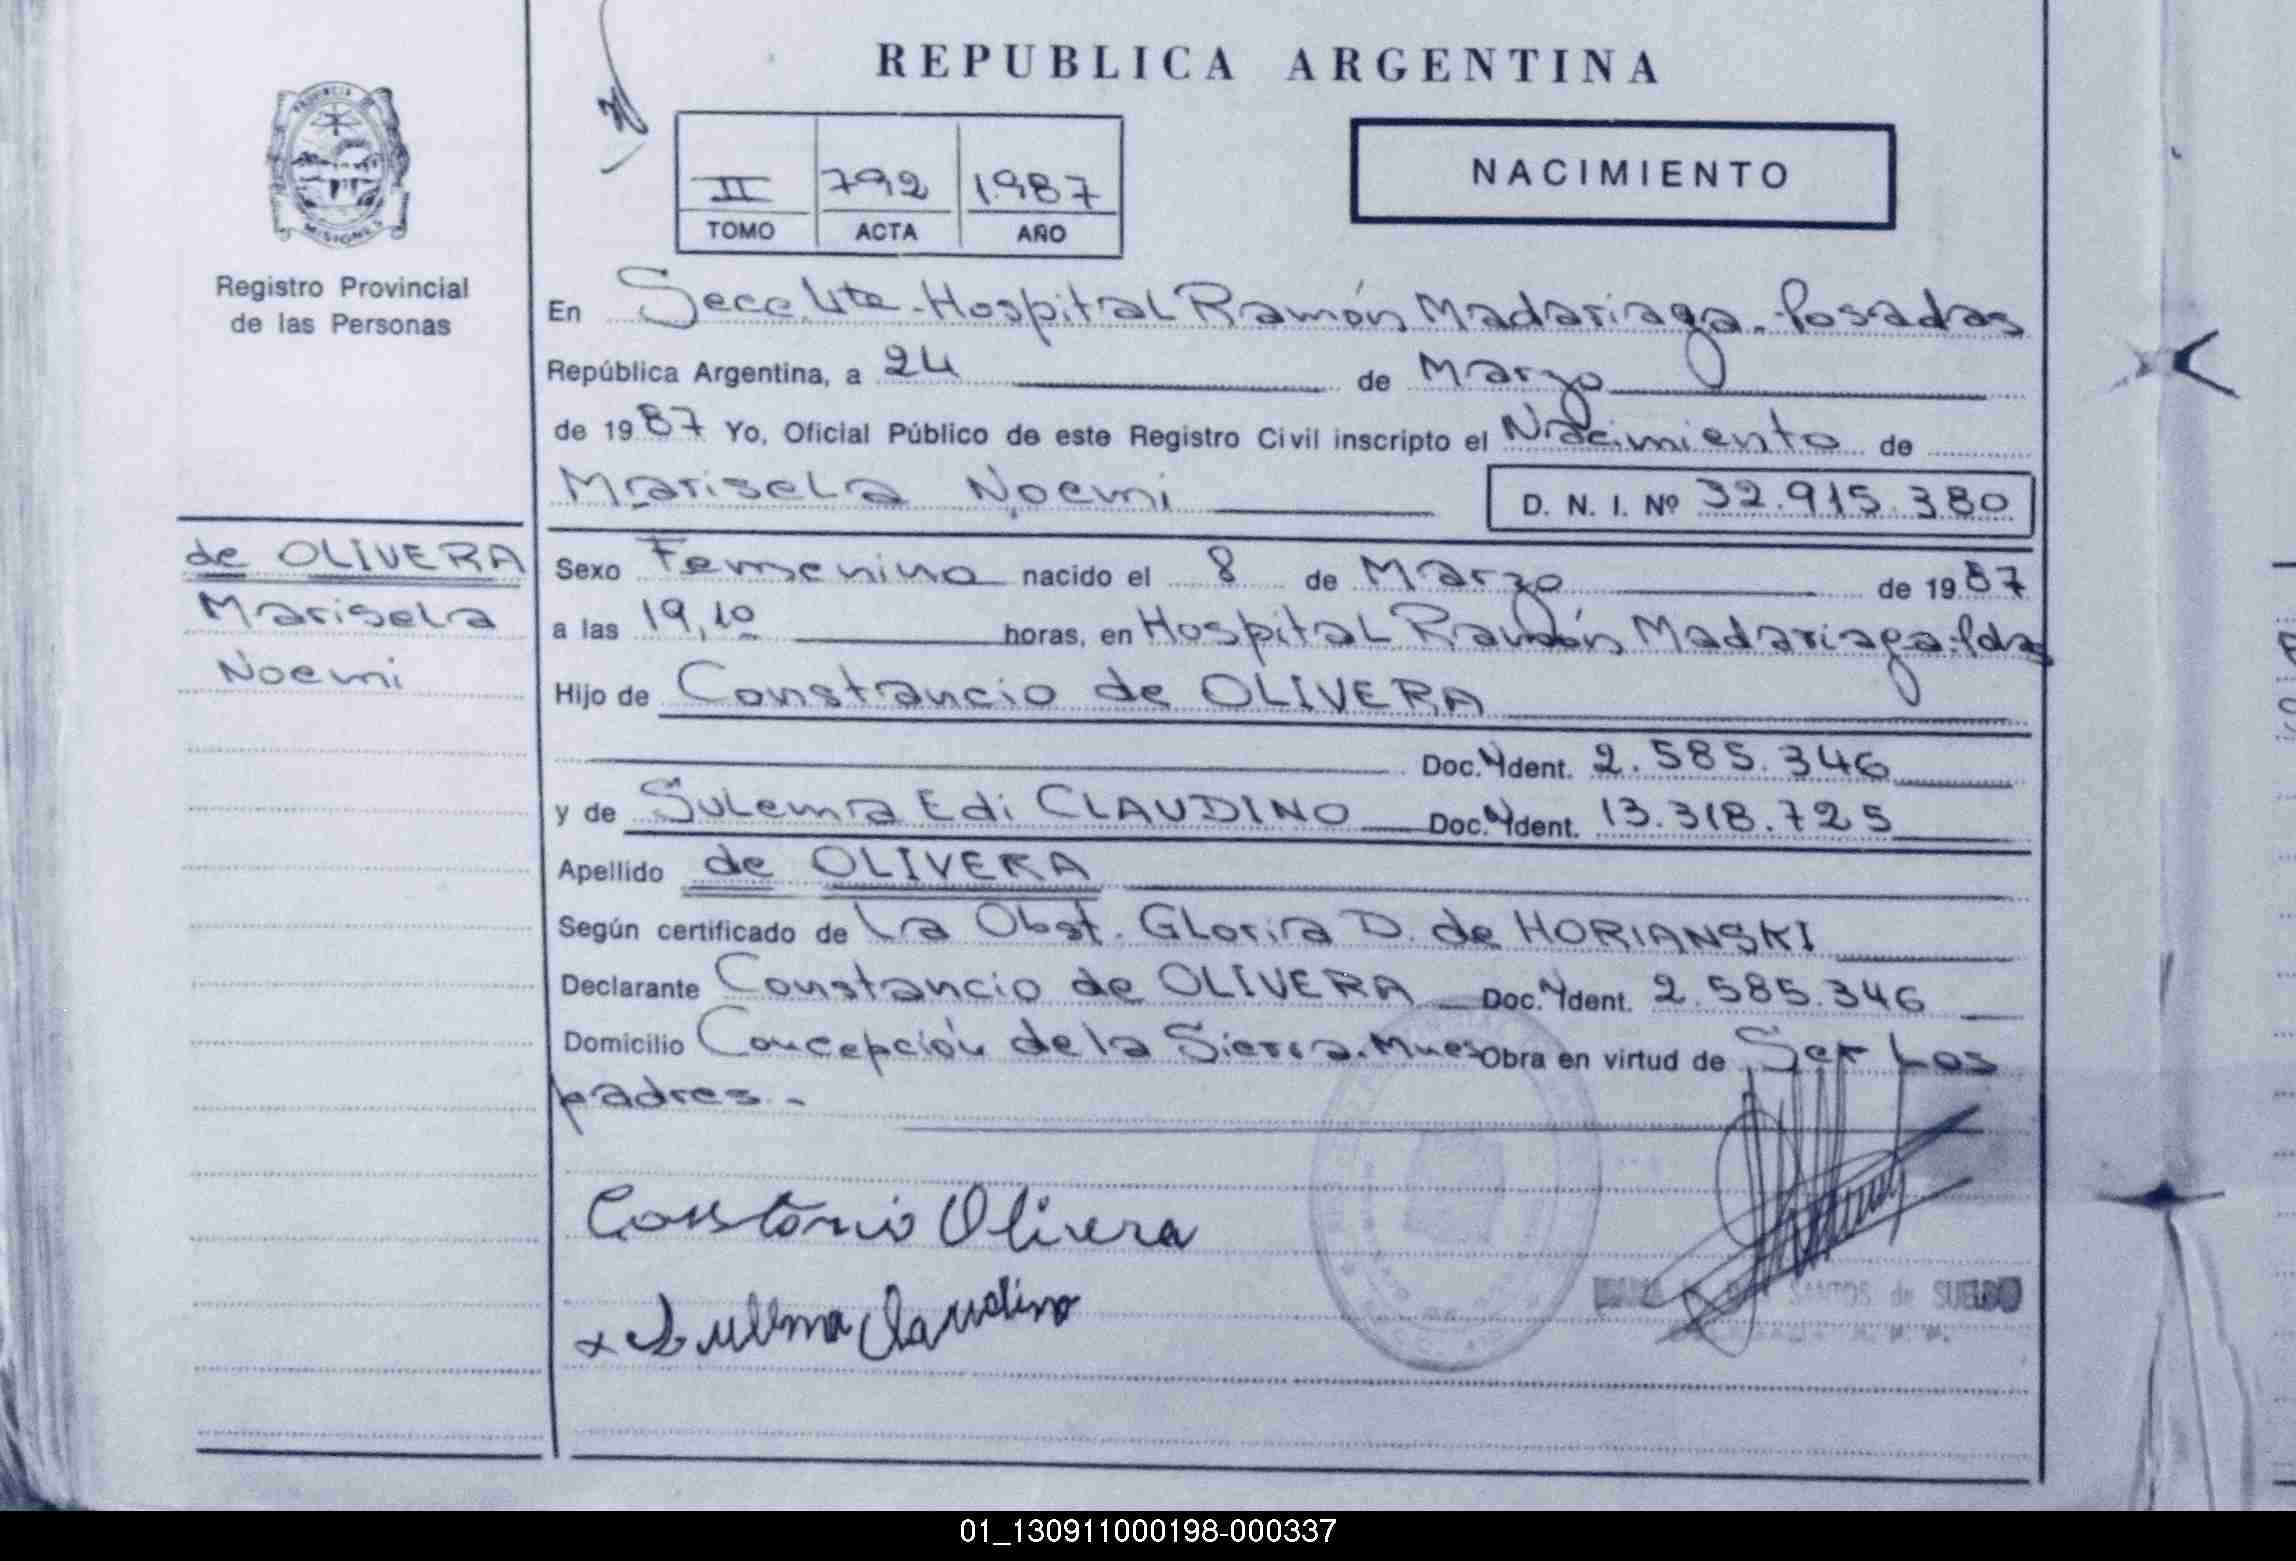 REPUBLICA ARGENTINA
PROVINCIA DE
MISIONES
Registro Provincial
de las Personas
II 792 1.987
TOMO ACTA AÑO
NACIMIENTO
En Secc. Hospital Ramón Madariaga - Posadas
República Argentina, a 24 de Marzo
de 1987 Yo, Oficial Público de este Registro Civil inscripto el Nacimiento de
Marisela Noemi D. N. I. Nº 32.915.380
de OLIVERA
Marisela
Noemi
Sexo Femenino nacido el 8 de Marzo de 1987
a las 19,10 horas, en Hospital Ramón Madariaga - Pdas
Hijo de Constancio de OLIVERA
Doc. Ydent. 2.585.346
y de Sulema Edi CLAUDINO Doc. Ydent. 13.318.725
Apellido de OLIVERA
Según certificado de La Obst. Gloria D. de HORIANSKI
Declarante Constancio de OLIVERA Doc. Ydent. 2.585.346
Domicilio Concepción de la Sierra. Mnes Obra en virtud de Ser Los
padres. -
Constancio Olivera
x Sullma Claudino
SANTOS de
01_130911000198-000337